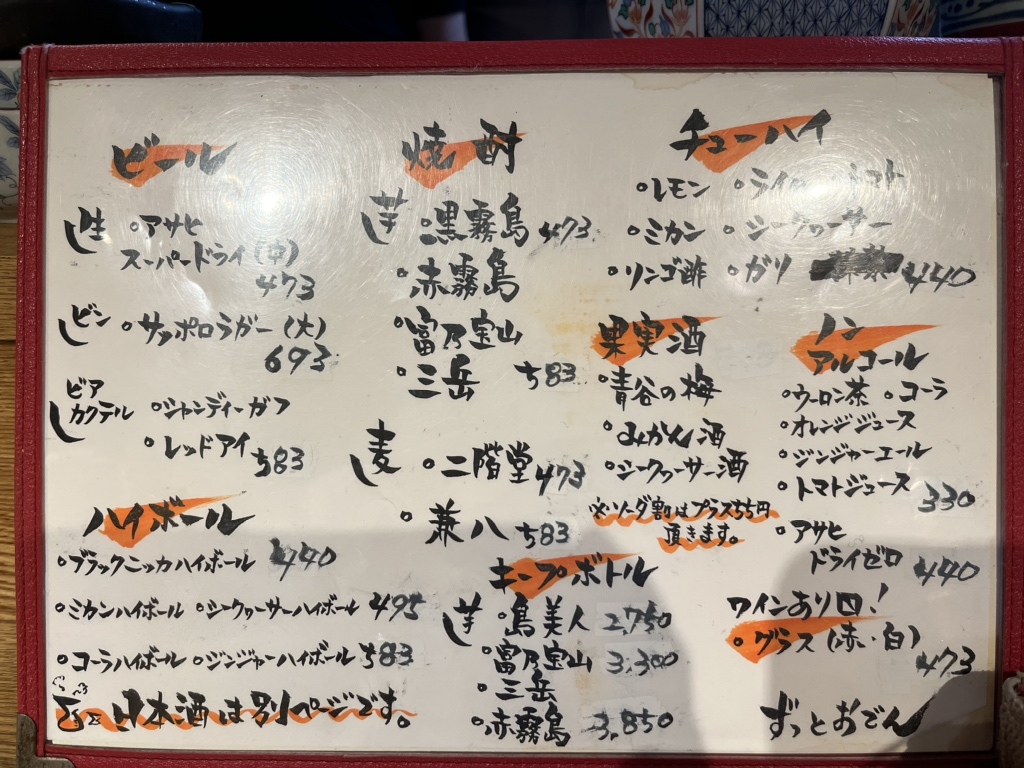 ビール
生 ◦アサヒ
スーパードライ(中)
473
ビン ◦サッポロラガー(大)
693
ビア
カクテル ◦シャンディーガフ
◦レッドアイ 583
ハイボール
◦ブラックニッカハイボール 440
◦ミカンハイボール ◦シークヮーサーハイボール 495
◦コーラハイボール ◦ジンジャーハイボール 583
日本酒は別ページです。
焼酎
芋 ◦黒霧島 473
◦赤霧島
◦富乃宝山
◦三岳 583
麦 ◦二階堂 473
◦兼八 583
キープボトル
芋 ◦島美人 2,750
◦富乃宝山 3,300
◦三岳
◦赤霧島 3,850
チューハイ
◦レモン ◦ライム ◦トマト
◦ミカン ◦シークヮーサー
◦リンゴ酢 ◦ガリ 440
果実酒
◦青谷の梅
◦みかん酒
◦シークヮーサー酒
※ソーダ割はプラス55円
頂きます。
ノン
アルコール
◦ウーロン茶 ◦コーラ
◦オレンジジュース
◦ジンジャーエール
◦トマトジュース 330
◦アサヒ
ドライゼロ 440
ワインあり□!
◦グラス(赤・白)
473
ずっとおでん